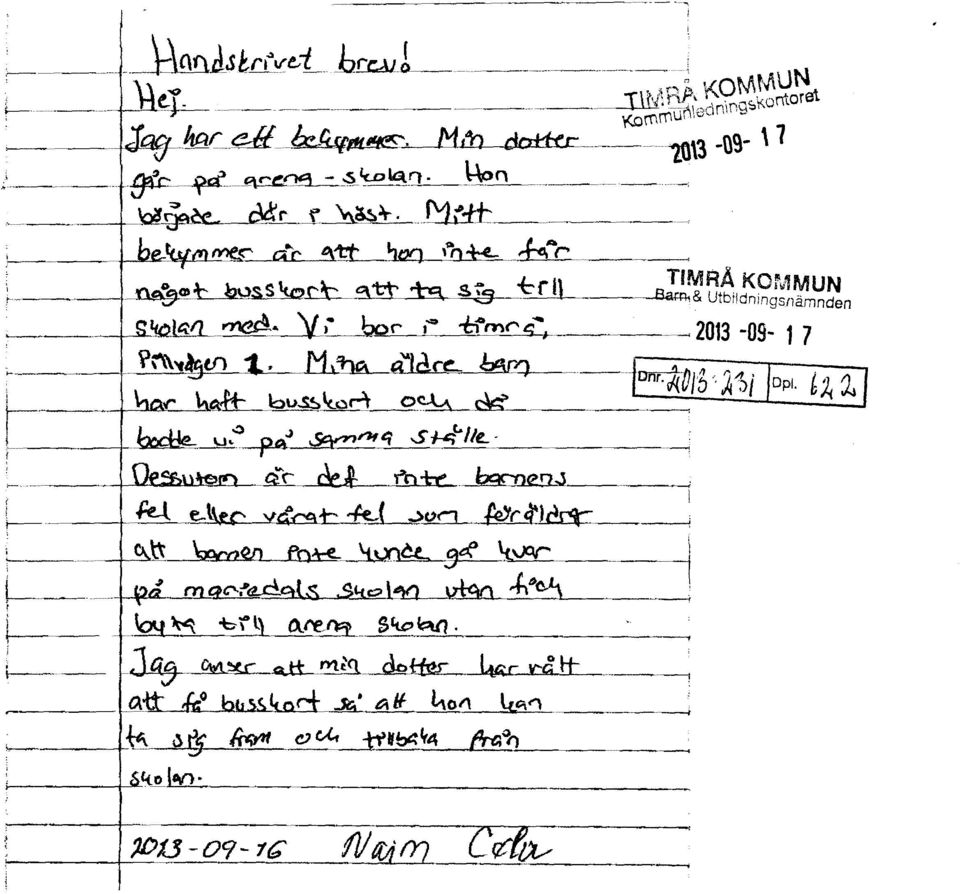 Handskrivet brev!
Hej.
Jag har ett bekymmer. Min dotter
går på arena-skolan. Hon
började där i höst. Mitt
bekymmer är att hon inte får
något busskort att ta sig till
skolan med. Vi bor i timrå,
Pillvägen 1. Mina äldre barn
har haft busskort och då
bodde vi på samma ställe.
Dessutom är det inte barnens
fel eller vårat fel som föräldrar
att barnen inte kunde gå kvar
på mariedals skolan utan fick
byta till arena skolan.
Jag anser att min dotter har rätt
att få busskort så att hon kan
ta sig fram och tillbaka från
skolan.
2013-09-16 Naim
TIMRÅ KOMMUN
Kommunledningskontoret
2013 -09- 17
TIMRÅ KOMMUN
Barn & Utbildningsnämnden
2013 -09- 17
Dnr. 2013:231 Dpl. 622